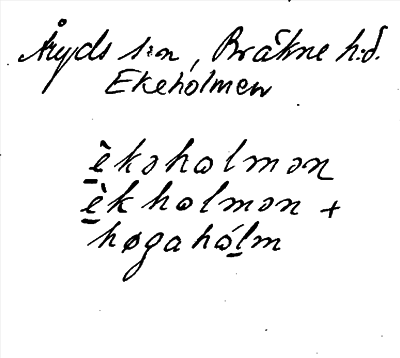 Åryds s:n, Bräkne h:d.
Ekeholmen
è̱kəhɷlmən
è̱khɷlmən +
høgahɷ́ḻm